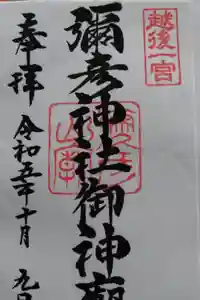 越後一宮
彌彦神社御神廟
奉拝
令和五年十月九日